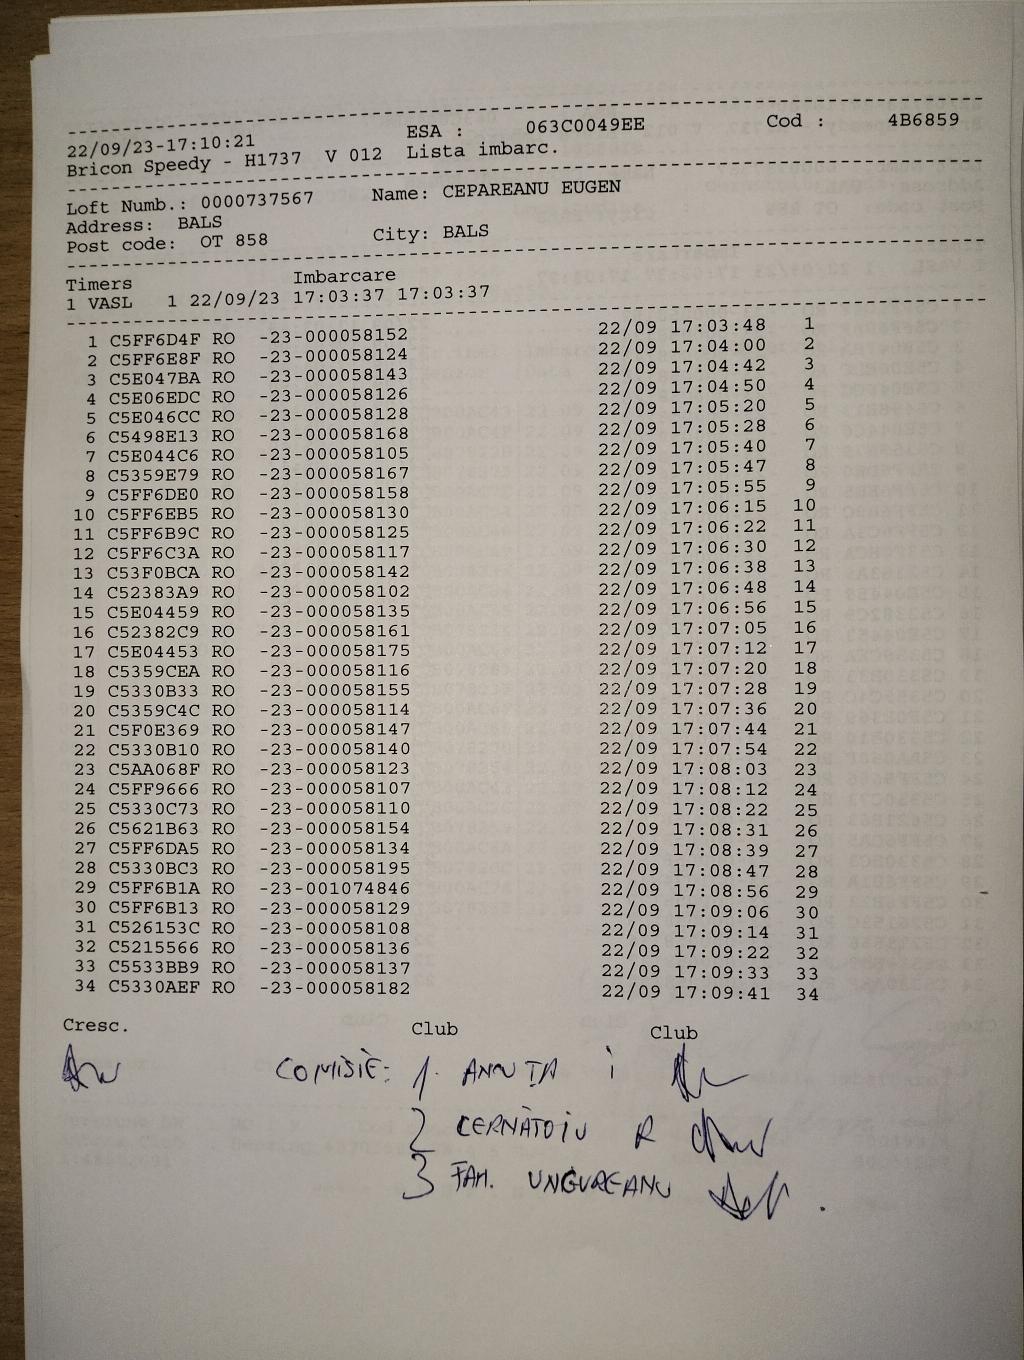 22/09/23-17:10:21 ESA : 063C0049EE Cod : 4B6859
Bricon Speedy - H1737 V 012 Lista imbarc.
Loft Numb.: 0000737567 Name: CEPAREANU EUGEN
Address: BALS
Post code: OT 858 City: BALS
Timers Imbarcare
1 VASL 1 22/09/23 17:03:37 17:03:37
1 C5FF6D4F RO -23-000058152 22/09 17:03:48 1
2 C5FF6E8F RO -23-000058124 22/09 17:04:00 2
3 C5E047BA RO -23-000058143 22/09 17:04:42 3
4 C5E06EDC RO -23-000058126 22/09 17:04:50 4
5 C5E046CC RO -23-000058128 22/09 17:05:20 5
6 C5498E13 RO -23-000058168 22/09 17:05:28 6
7 C5E044C6 RO -23-000058105 22/09 17:05:40 7
8 C5359E79 RO -23-000058167 22/09 17:05:47 8
9 C5FF6DE0 RO -23-000058158 22/09 17:05:55 9
10 C5FF6EB5 RO -23-000058130 22/09 17:06:15 10
11 C5FF6B9C RO -23-000058125 22/09 17:06:22 11
12 C5FF6C3A RO -23-000058117 22/09 17:06:30 12
13 C53F0BCA RO -23-000058142 22/09 17:06:38 13
14 C52383A9 RO -23-000058102 22/09 17:06:48 14
15 C5E04459 RO -23-000058135 22/09 17:06:56 15
16 C52382C9 RO -23-000058161 22/09 17:07:05 16
17 C5E04453 RO -23-000058175 22/09 17:07:12 17
18 C5359CEA RO -23-000058116 22/09 17:07:20 18
19 C5330B33 RO -23-000058155 22/09 17:07:28 19
20 C5359C4C RO -23-000058114 22/09 17:07:36 20
21 C5F0E369 RO -23-000058147 22/09 17:07:44 21
22 C5330B10 RO -23-000058140 22/09 17:07:54 22
23 C5AA068F RO -23-000058123 22/09 17:08:03 23
24 C5FF9666 RO -23-000058107 22/09 17:08:12 24
25 C5330C73 RO -23-000058110 22/09 17:08:22 25
26 C5621B63 RO -23-000058154 22/09 17:08:31 26
27 C5FF6DA5 RO -23-000058134 22/09 17:08:39 27
28 C5330BC3 RO -23-000058195 22/09 17:08:47 28
29 C5FF6B1A RO -23-001074846 22/09 17:08:56 29
30 C5FF6B13 RO -23-000058129 22/09 17:09:06 30
31 C526153C RO -23-000058108 22/09 17:09:14 31
32 C5215566 RO -23-000058136 22/09 17:09:22 32
33 C5533BB9 RO -23-000058137 22/09 17:09:33 33
34 C5330AEF RO -23-000058182 22/09 17:09:41 34
Cresc. Club Club
COMISIE: 1. ANNUȚA i
2 CERNĂTOIU R
3 FAM. UNGUREANU